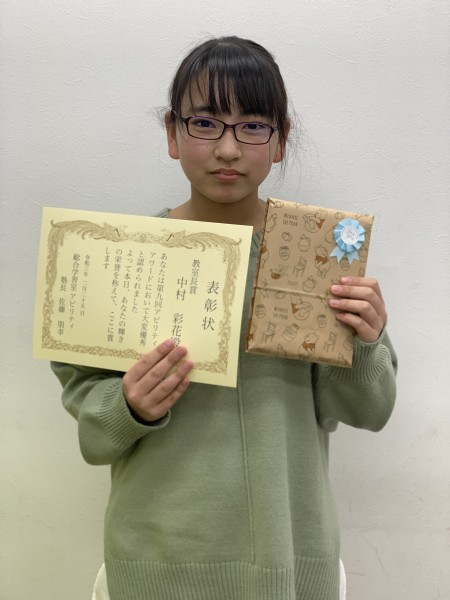 表彰状
教室長賞
中村 彩花
あなたは第九回アビリティ
アワードにおいて大変優秀
と認められました
よって本日、あなたの輝き
の栄誉を称えて、ここに賞
します
令和三年 二月二十五日
総合学習室アビリティ
塾長 佐藤 朋幸